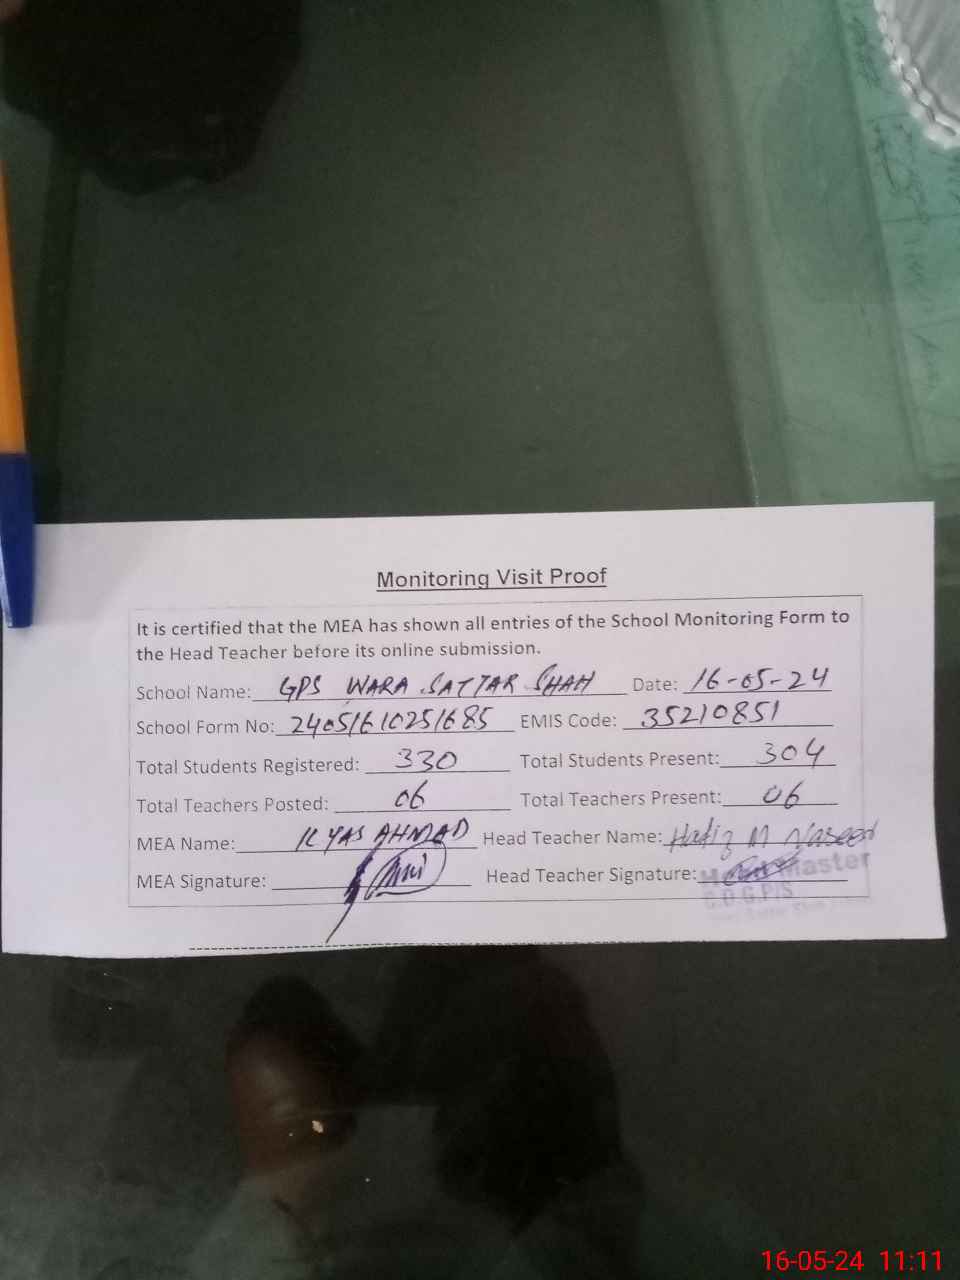 Monitoring Visit Proof
It is certified that the MEA has shown all entries of the School Monitoring Form to
the Head Teacher before its online submission.
School Name: GPS WARA SATTAR SHAH Date: 16-05-24
School Form No: 24051610251685 EMIS Code: 35210851
Total Students Registered: 330 Total Students Present: 304
Total Teachers Posted: 06 Total Teachers Present: 06
MEA Name: ILYAS AHMAD Head Teacher Name: Hafiz M Naseer
MEA Signature: Head Teacher Signature:
Head Master
16-05-24 11:11